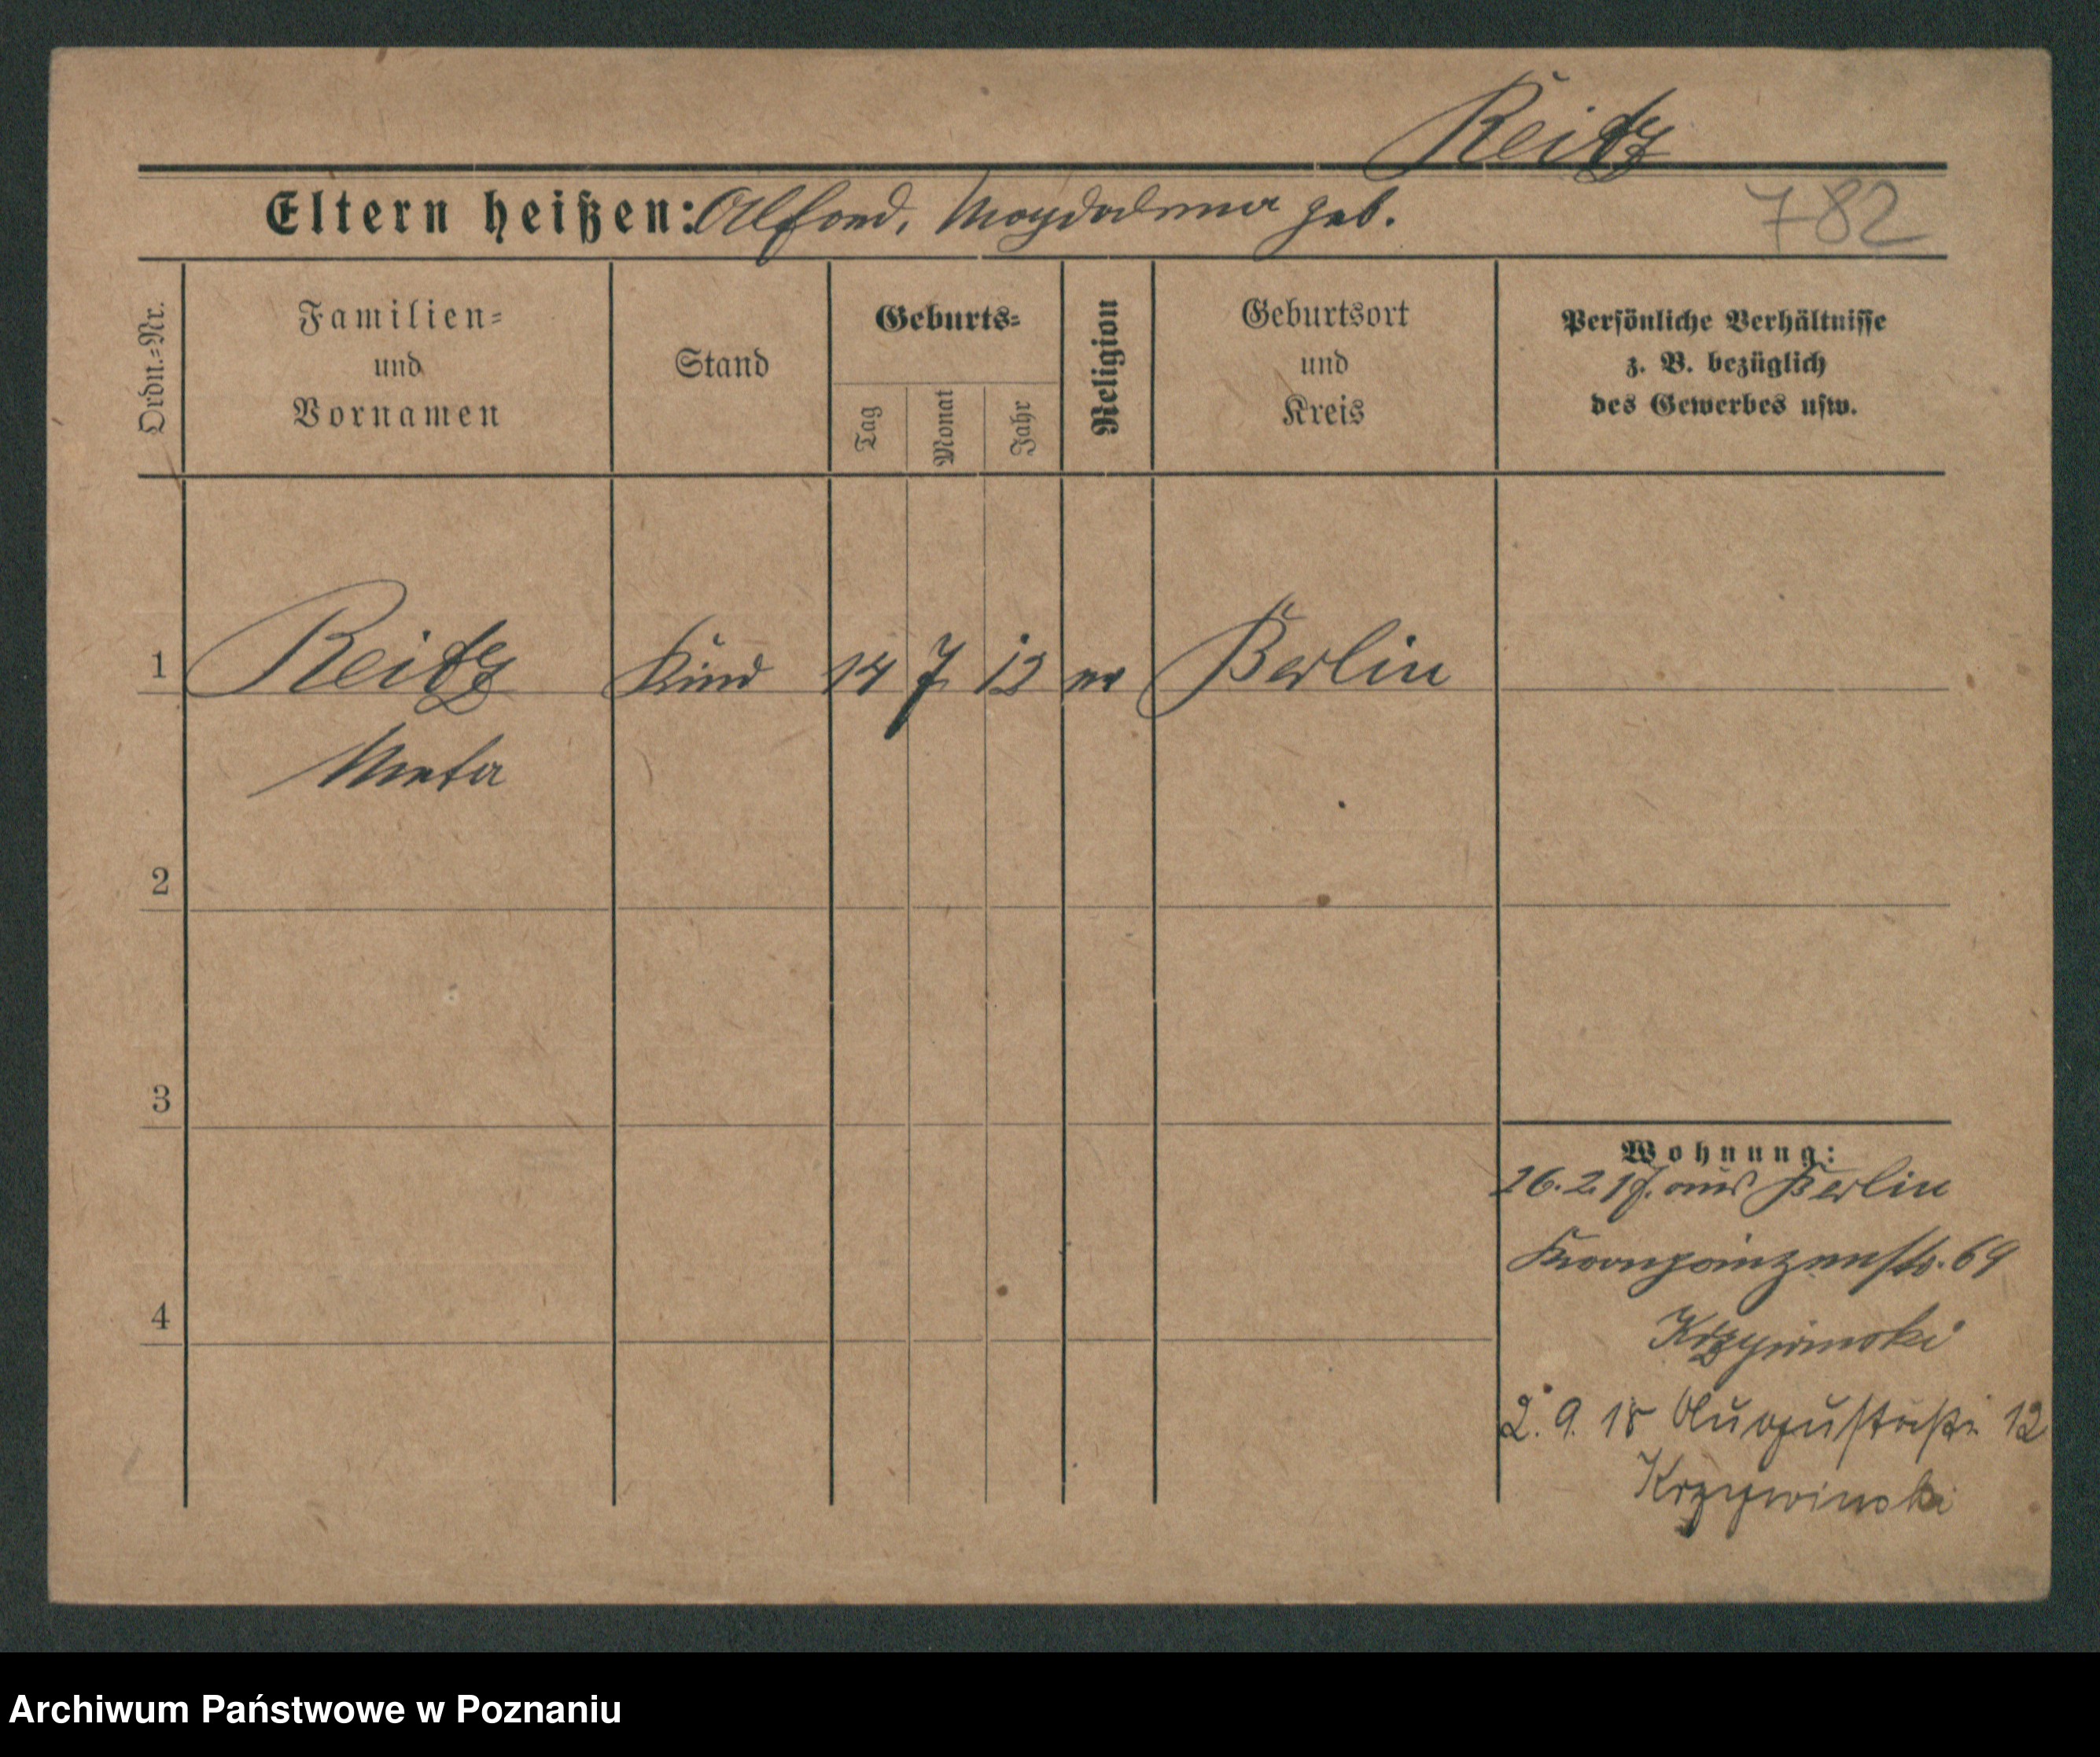 Reitz
Eltern heißen: Alfred, Magdalena geb.
782
Ordn.=Nr.
Familien=
und
Vornamen
Stand
Geburts=
Tag
Monat
Jahr
Religion
Geburtsort
und
Kreis
Persönliche Verhältnisse
z. B. bezüglich
des Gewerbes usw.
1 Reitz Kind 14 7 12 ev Berlin
Meta
2
3
4
Wohnung:
26. 2. 17. aus Berlin
Kronprinzenstr. 69
Krzywinski
2. 9. 18 Augustastr. 12
Krzywinski
Archiwum Państwowe w Poznaniu